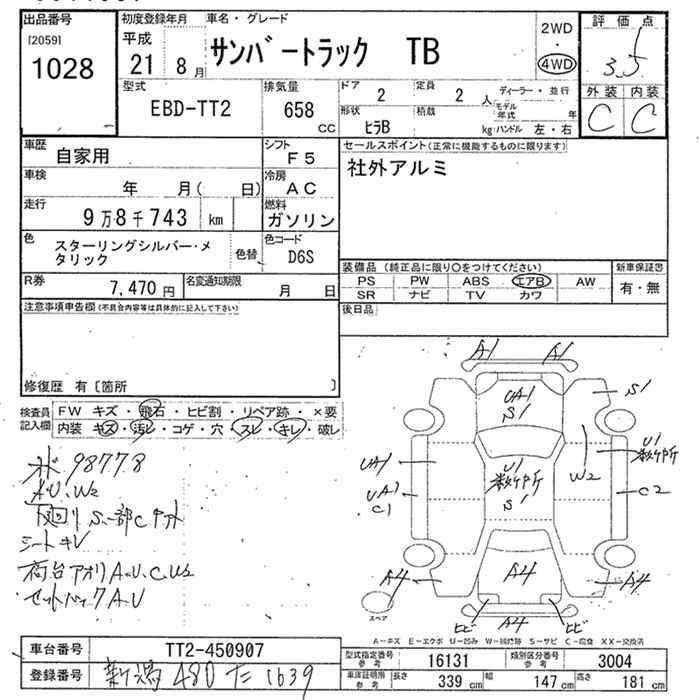 出品番号
[2059]
1028
初度登録年月
平成
21 8月
車名・グレード
サンバートラック TB
2WD
4WD
評価点
3.5
外装 内装
C C
型式
EBD-TT2
排気量
658 CC
ドア
2
定員
2 人
ディーラー・並行
モデル年式 年
形状
ヒラB
積載
kg
ハンドル 左・右
車歴
自家用
シフト
F5
車検
年 月( 日)
冷房
AC
走行
9万8千743 km
燃料
ガソリン
色
スターリングシルバー・メ
タリック
色替
色コード
D6S
R券
7,470円
名変通知期限
月 日
セールスポイント(正常に機能するものに限ります)
社外アルミ
装備品(純正品に限り○をつけてください)
PS PW ABS エアB AW
SR ナビ TV カワ
新車保証図
有・無
後日品
注意事項申告欄(不具合内容等は具体的に記入して下さい)
修復歴 有〔箇所 〕
検査員
記入欄
FW キズ・飛石・ヒビ割・リペア跡・×要
内装 キズ・汚レ・コゲ・穴・スレ・キレ・破レ
98778
A.U.W2
下回りS.一部C
シートキレ
荷台アオリA.U.C.U2
セットバックA.U
A1 A1
UA1
S1
S1
U1
数ヶ所
W2
U1
数ヶ所
S1
UA1
UA1
C1
C2
A4
A4
A4
A4
ヒビ
ヒビ
スペア
A-キズ E-エクボ U-凹み W-補修跡 S-サビ C-腐食 XX-交換済
車台番号
TT2-450907
登録番号
新潟 480 た 1639
型式指定番号
参考
16131
類別区分番号
参考
3004
車庫証明用
参考
長さ
339 cm
幅
147 cm
高さ
181 cm